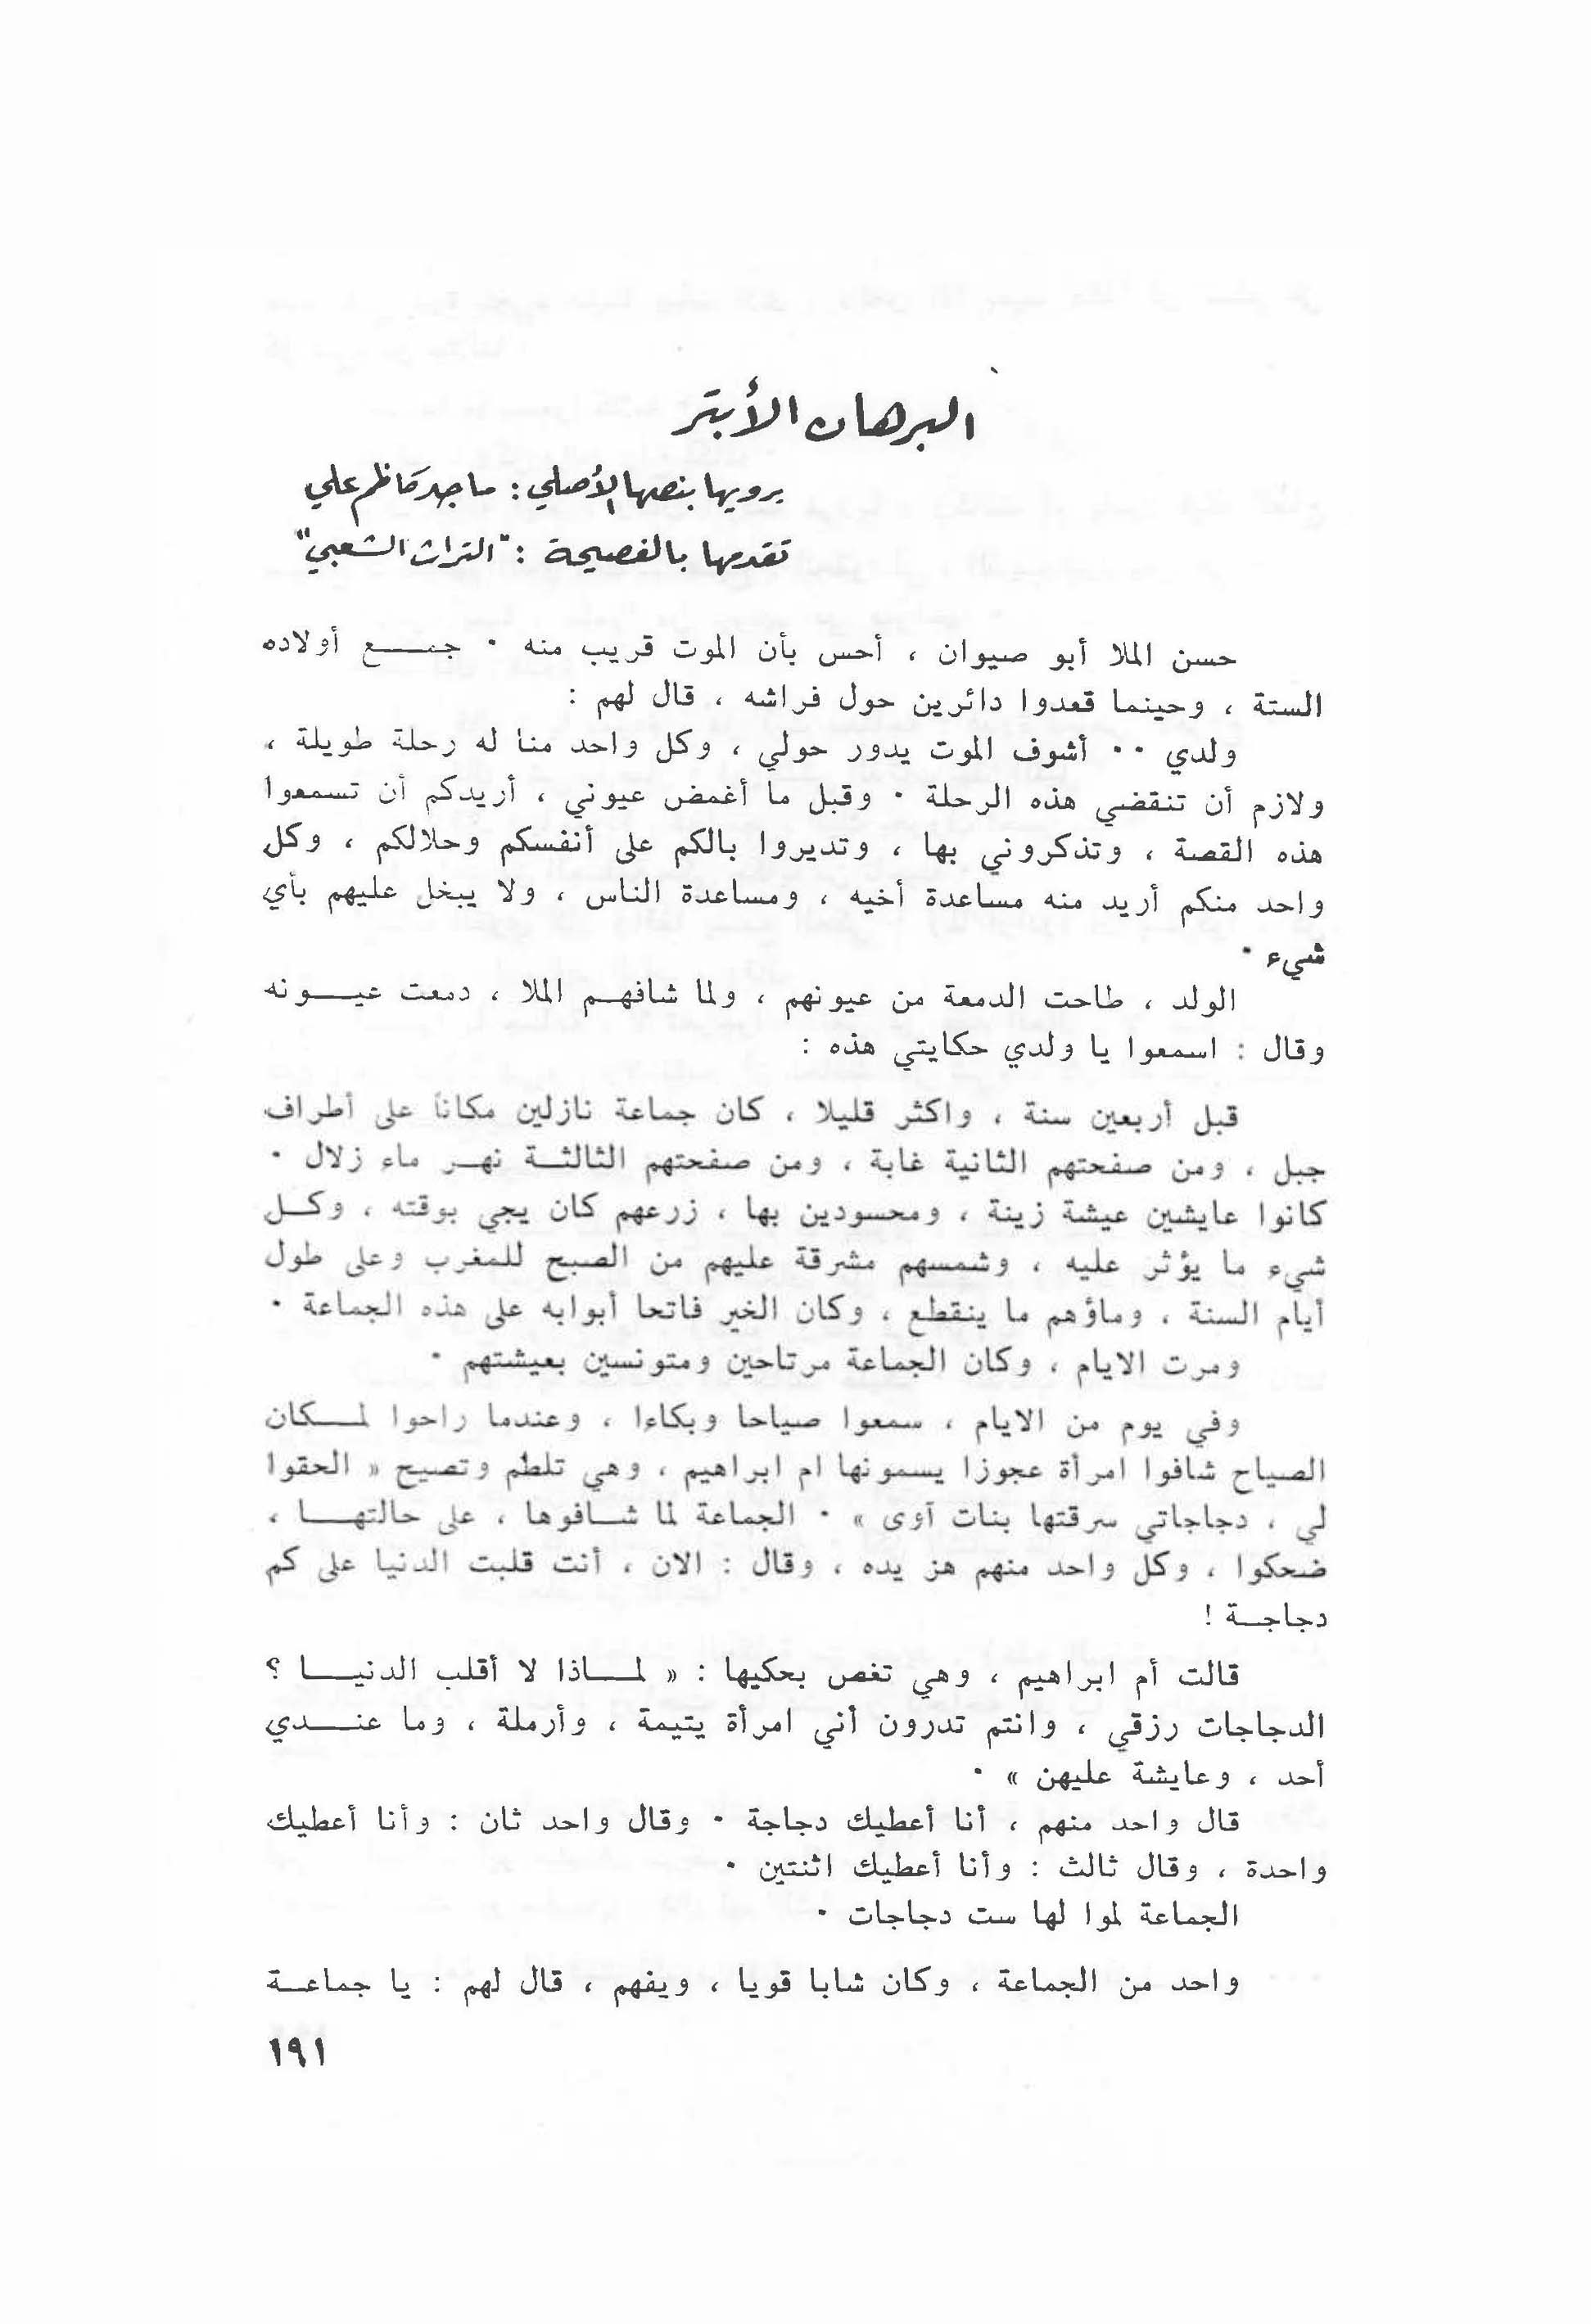 البرهان الأبتر
يرويها بنصها الأصلي : ماجد كاظم علي
تقدمها بالفصيحة : "التراث الشعبي"
حسن الملا أبو صيوان ، أحس بأن الموت قريب منه · جمـــع أولاده
الستة ، وحينما قعدوا دائرين حول فراشه ، قال لهم :
ولدي ·· أشوف الموت يدور حولي ، وكل واحد منا له رحلة طويلة ،
ولازم أن تنقضي هذه الرحلة · وقبل ما أغمض عيوني ، أريدكم أن تسمعوا
هذه القصة ، وتذكروني بها ، وتديروا بالكم على أنفسكم وحلالكم ، وكل
واحد منكم أريد منه مساعدة أخيه ، ومساعدة الناس ، ولا يبخل عليهم بأي
شيء ·
الولد ، طاحت الدمعة من عيونهم ، ولما شافهـم الملا ، دمعت عيـــونه
وقال : اسمعوا يا ولدي حكايتي هذه :
قبل أربعين سنة ، واكثر قليلا ، كان جماعة نازلين مكاناً على أطراف
جبل ، ومن صفحتهم الثانية غابة ، ومن صفحتهم الثالثـة نهـر ماء زلال ·
كانوا عايشين عيشة زينة ، ومحسودين بها ، زرعهم كان يجي بوقته ، وكـل
شيء ما يؤثر عليه ، وشمسهم مشرقة عليهم من الصبح للمغرب وعلى طول
أيام السنة ، وماؤهم ما ينقطع ، وكان الخير فاتحا أبوابه على هذه الجماعة ·
ومرت الايام ، وكان الجماعة مرتاحين ومتونسين بعيشتهم ·
وفي يوم من الايام ، سمعوا صياحا وبكاءا ، وعندما راحوا لمـــكان
الصياح شافوا امرأة عجوزا يسمونها ام ابراهيم ، وهي تلطم وتصيح « الحقوا
لي ، دجاجاتي سرقتها بنات آوى » · الجماعة لما شـافوها ، على حالتهـــا ،
ضحكوا ، وكل واحد منهم هز يده ، وقال : الان ، أنت قلبت الدنيا على كم
دجاجـة !
قالت أم ابراهيم ، وهي تغص بحكيها : « لمـــاذا لا أقلب الدنيـــا ؟
الدجاجات رزقي ، وانتم تدرون أني امرأة يتيمة ، وأرملة ، وما عنـــدي
أحد ، وعايشة عليهن » ·
قال واحد منهم ، أنا أعطيك دجاجة · وقال واحد ثان : وأنا أعطيك
واحدة ، وقال ثالث : وأنا أعطيك اثنتين ·
الجماعة لموا لها ست دجاجات ·
واحد من الجماعة ، وكان شابا قويا ، ويفهم ، قال لهم : يا جماعـة
١٩١